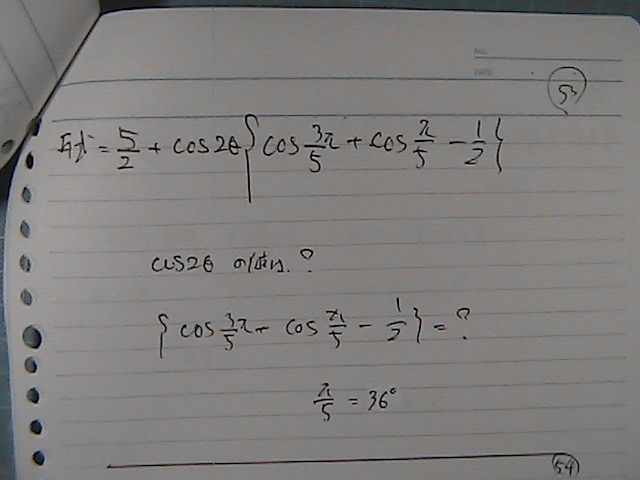 NO.
DATE
53
与式 = 5/2 + cos2θ { cos 3π/5 + cos π/5 - 1/2 }
cos2θ の値は. ?
{ cos 3π/5 + cos π/5 - 1/2 } = ?
π/5 = 36°
54